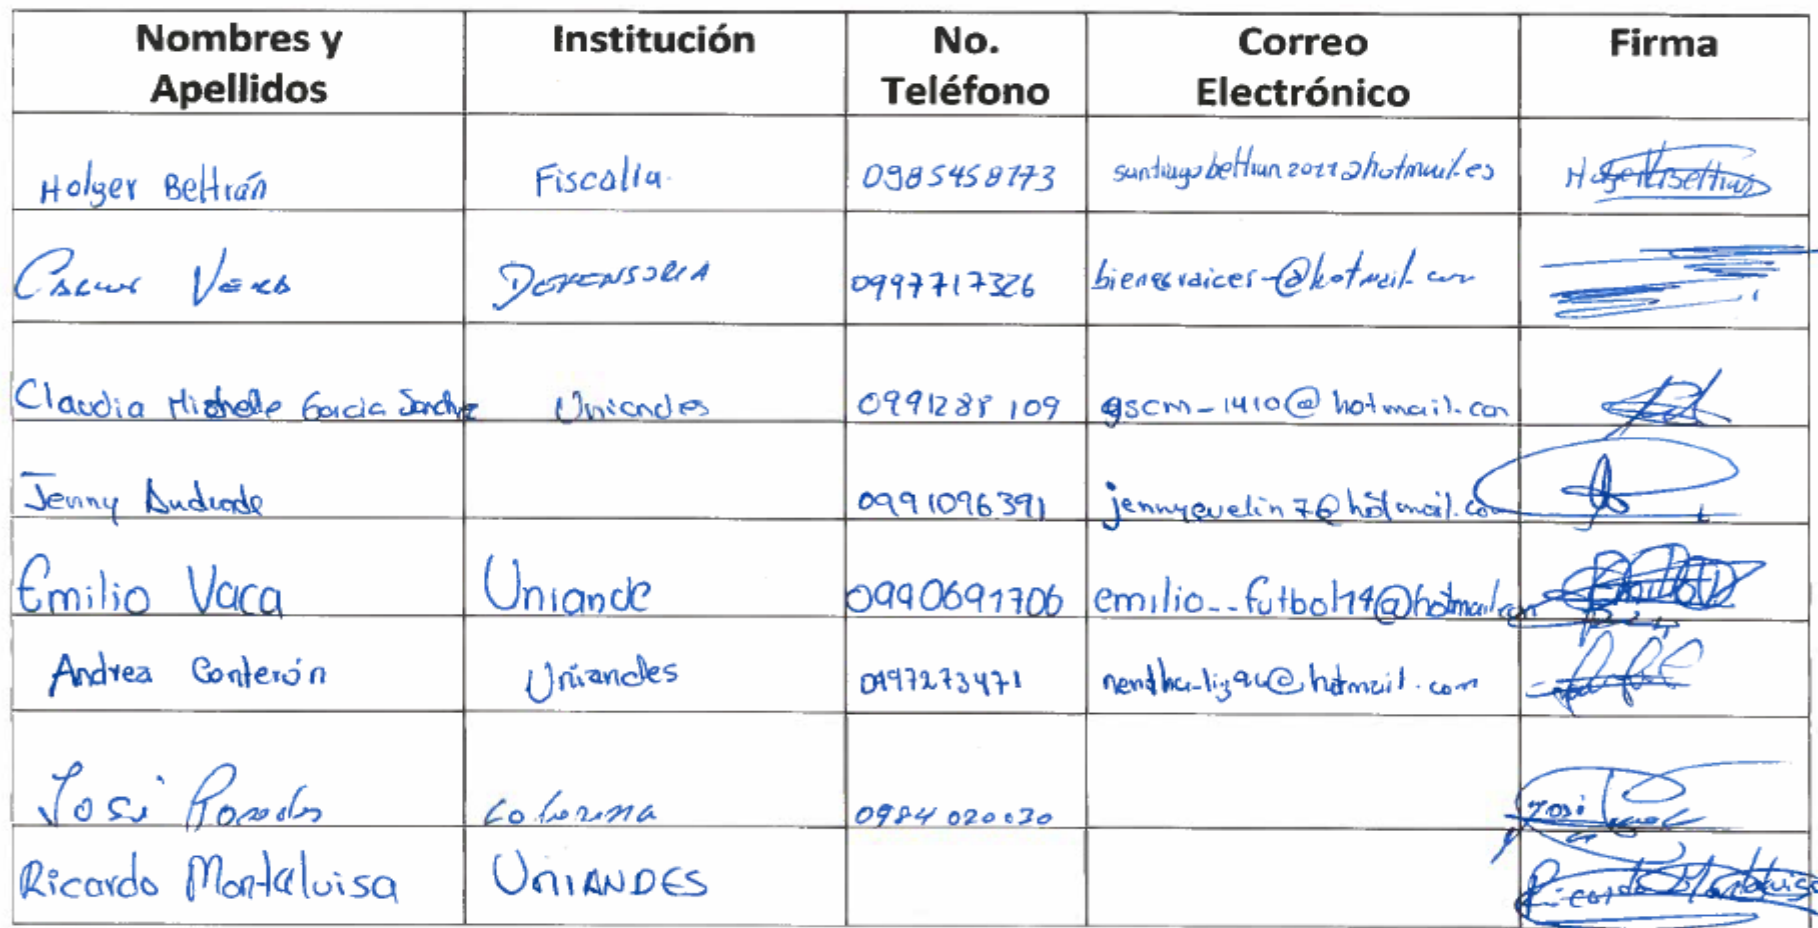 Nombres y Apellidos Institución No. Teléfono Correo Electrónico Firma
Holger Beltrán Fiscalia. 0985458773 santiagobeltran2022@hotmail.es Holger Beltran
Vera DEFENSORIA 0997717326 bienesraices-@hotmail.com
Claudia Mishelle Garcia Sanchez Uniandes 0991288109 gscm-1410@hotmail.com
Jenny Andrade 0991096391 jennyevelin7@hotmail.com
Emilio Vaca Uniande 0990691706 emilio--futbol14@hotmail.com
Andrea Conterón Uniandes 0997273471 @hotmail.com
José 0984020030 José
Ricardo Montaluisa UNIANDES Ricardo Montaluisa